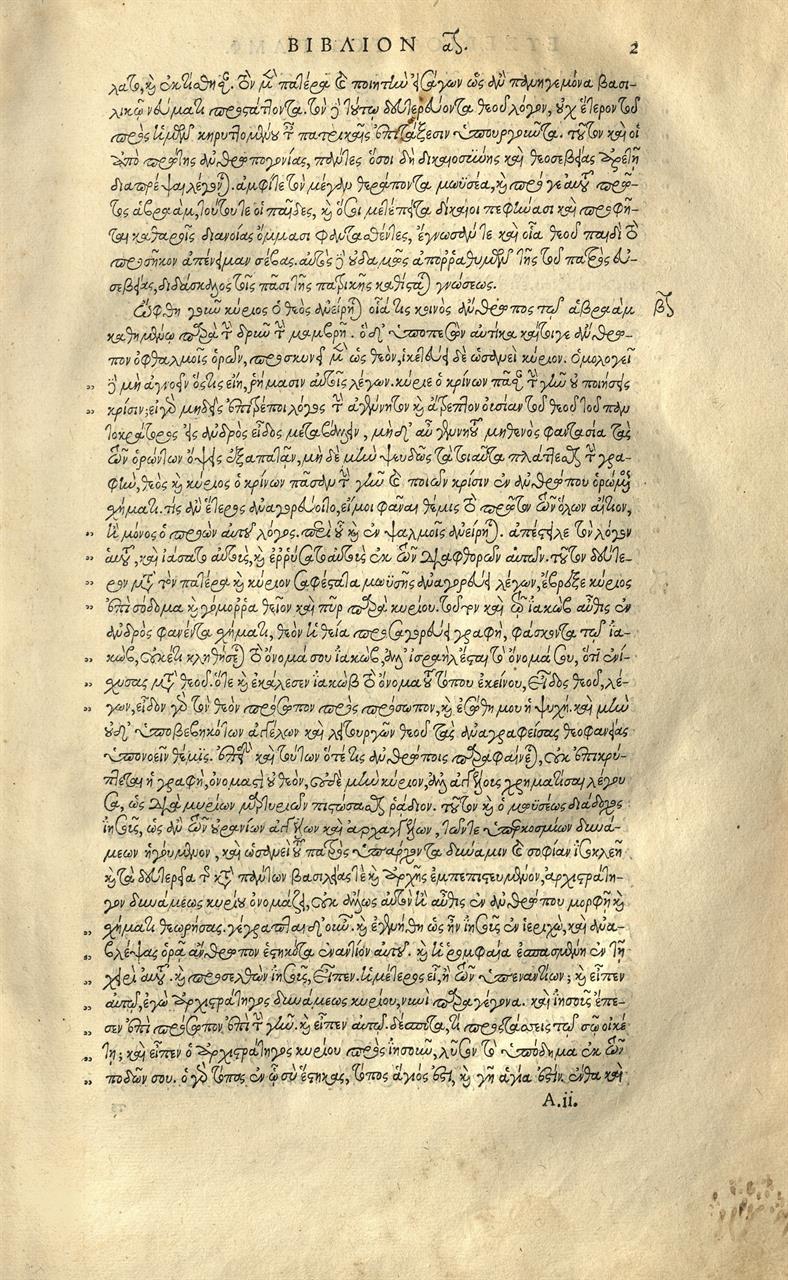 ΒΙΒΛΙΟΝ α.
2
λατο, καὶ ἐκτίσθησαν. τὸν μὲν πατέρα καὶ ποιητὴν εἰσάγων ὡς ἂν πανηγεμόνα βασι-
λικῷ νεύματι προστάττοντα. τὸν δὲ τούτῳ δευτερεύοντα θεοῦ λόγον, οὐχ ἕτερον τοῦ
πρὸς ἡμῶν κηρυττομένου ταῖς πατρικαῖς ἐπιτάξεσιν ὑπουργοῦντα. τοῦτον καὶ οἱ
ἀπὸ πρώτης ἀνθρωπογονίας, πάντες ὅσοι δὴ δικαιοσύνης καὶ θεοσεβείας ἀρετῇ
διαπρέψαι λέγονται. ἀμφί τε τὸν μέγαν θεράποντα μωϋσέα, καὶ πρό γε αὐτοῦ πρῶ-
τος ἁβραὰμ, τούτου τε οἱ παῖδες, καὶ ὅσοι μετέπειτα δίκαιοι πεφήνασι καὶ προφῆ-
ται καθαροῖς διανοίας ὄμμασι φαντασθέντες, ἔγνωσάν τε καὶ οἷα θεοῦ παιδὶ τὸ
προσῆκον ἀπένειμαν σέβας. αὐτὸς δὲ οὐδαμῶς ἀπορραθυμῶν τῆς τοῦ πατρὸς εὐ-
σεβείας, διδάσκαλος τοῖς πᾶσι τῆς πατρικῆς καθίσταται γνώσεως.
Ὤφθη γοῦν κύριος ὁ θεὸς ἀνείρηται οἷά τις κοινὸς ἄνθρωπος τῷ ἁβραὰμ
β
καθημένῳ παρὰ τὴν δρῦν τὴν μαμβρῆ. ὁ δ' ὑποπεσὼν αὐτίκα καίτοιγε ἄνθρω-
πον ὀφθαλμοῖς ὁρῶν, προσκυνεῖ μὲν ὡς θεὸν, ἱκετεύει δὲ ὡσανεὶ κύριον. ὁμολογεῖ
δὲ μὴ ἀγνοεῖν ὅστις εἴη, ῥήμασιν αὐτοῖς λέγων. κύριε ὁ κρίνων πᾶσαν τὴν γῆν οὐ ποιήσεις
κρίσιν; εἰ γὰρ μηδεὶς ἐπιτρέποι λόγος τὴν ἀγένητον καὶ ἄτρεπτον οὐσίαν τοῦ θεοῦ τοῦ παν
τοκράτορος εἰς ἀνδρὸς εἶδος μεταβάλλειν, μηδ' αὖ γενητοῦ μηθενὸς φαντασία τὰς
τῶν ὁρώντων ὄψεις ἐξαπατᾶν, μηδὲ μὴν ψευδῶς τὰ τοιαῦτα πλάττεσθαι τὴν γρα-
φὴν, θεὸς καὶ κύριος ὁ κρίνων πᾶσαν τὴν γῆν καὶ ποιῶν κρίσιν ἐν ἀνθρώπου ὁρώμενος
σχήματι. τίς ἂν ἕτερος ἀναγορεύοιτο, εἰ μὴ φάναι θέμις τὸ πρῶτον τῶν ὅλων αἴτιον,
ἢ μόνος ὁ προὼν αὐτοῦ λόγος. περὶ οὗ καὶ ἐν ψαλμοῖς ἀνείρηται. ἀπέστειλε τὸν λόγον
αὐτοῦ, καὶ ἰάσατο αὐτοὺς, καὶ ἐρρύσατο αὐτοὺς ἐκ τῶν διαφθορῶν αὐτῶν. τοῦτον δεύτε-
ρον μετὰ τὸν πατέρα καὶ κύριον σαφέστατα μωϋσῆς ἀναγορεύει λέγων, ἔβρεξε κύριος
ἐπὶ σόδομα καὶ γόμορρα θεῖον καὶ πῦρ παρὰ κυρίου. τοῦτον καὶ τῷ ἰακὼβ αὖθις ἐν
ἀνδρὸς φανέντα σχήματι, θεὸν ἡ θεία προσαγορεύει γραφὴ, φάσκοντα τῷ ἰα-
κὼβ, οὐκέτι κληθήσεται τὸ ὄνομά σου ἰακὼβ, ἀλλ' ἰσραὴλ ἔσται τὸ ὄνομά σου, ὅτι ἐνί-
σχυσας μετὰ θεοῦ. ὅτε καὶ ἐκάλεσεν ἰακὼβ τὸ ὄνομα τοῦ τόπου ἐκείνου, εἶδος θεοῦ, λέ-
γων, εἶδον γὰρ τὸν θεὸν πρόσωπον πρὸς πρόσωπον, καὶ ἐσώθη μου ἡ ψυχή. καὶ μὴν
οὐδ' ὑποβεβηκότων ἀγγέλων καὶ λειτουργῶν θεοῦ τὰς ἀναγραφείσας θεοφανείας
ὑπονοεῖν θέμις. ἐπειδὴ καὶ τούτων ὅτέ τις ἀνθρώποις παραφαίνεται, οὐκ ἐπικρύ-
πτεται ἡ γραφὴ, ὀνομαστὶ οὐ θεὸν, οὐδὲ μὴν κύριον, ἀλλ' ἀγγέλους χρηματίσαι λέγου
σα, ὡς διὰ μυρίων μαρτυριῶν πιστώσασθαι ῥᾴδιον. τοῦτον καὶ ὁ μωϋσέως διάδοχος
ἰησοῦς, ὡς ἂν τῶν οὐρανίων ἀγγέλων καὶ ἀρχαγγέλων, τῶν τε ὑπερκοσμίων δυνά-
μεων ἡγούμενον, καὶ ὡσανεὶ τοῦ πατρὸς ὑπάρχοντα δύναμιν καὶ σοφίαν εἰσκληθῆ
καὶ τὰ δευτερεῖα τῆς κατὰ πάντων βασιλείας τε καὶ ἀρχῆς ἐμπεπιστευμένον, ἀρχιστράτη-
γον δυνάμεως κυρίου ὀνομάζει, οὐκ ἄλλως αὐτὸν ἢ αὖθις ἐν ἀνθρώπου μορφῇ καὶ
σχήματι θεωρήσας. γέγραπται δ' οὖν. καὶ ἐγενήθη ὡς ἦν ἰησοῦς ἐν ἱεριχὼ, καὶ ἀνα-
βλέψας ὁρᾷ ἄνθρωπον ἑστηκότα ἐναντίον αὐτοῦ. καὶ ἡ ῥομφαία ἐσπασμένη ἐν τῇ
χειρὶ αὐτοῦ. καὶ προσελθὼν ἰησοῦς, εἶπεν. ἡμέτερος εἶ, ἢ τῶν ὑπεναντίων; καὶ εἶπεν
αὐτῷ, ἐγὼ ἀρχιστράτηγος δυνάμεως κυρίου, νυνὶ παραγέγονα. καὶ ἰησοῦς ἔπε-
σεν ἐπὶ πρόσωπον ἐπὶ τὴν γῆν. καὶ εἶπεν αὐτῷ. δέσποτα, τί προστάσσεις τῷ σῷ οἰκέ-
τῃ; καὶ εἶπεν ὁ ἀρχιστράτηγος κυρίου πρὸς ἰησοῦν, λῦσον τὸ ὑπόδημα ἐκ τῶν
ποδῶν σου. ὁ γὰρ τόπος ἐν ᾧ σὺ ἕστηκας, τόπος ἅγιός ἐστι, καὶ γῆ ἁγία ἐστίν. ἔνθα καὶ
A.ii.